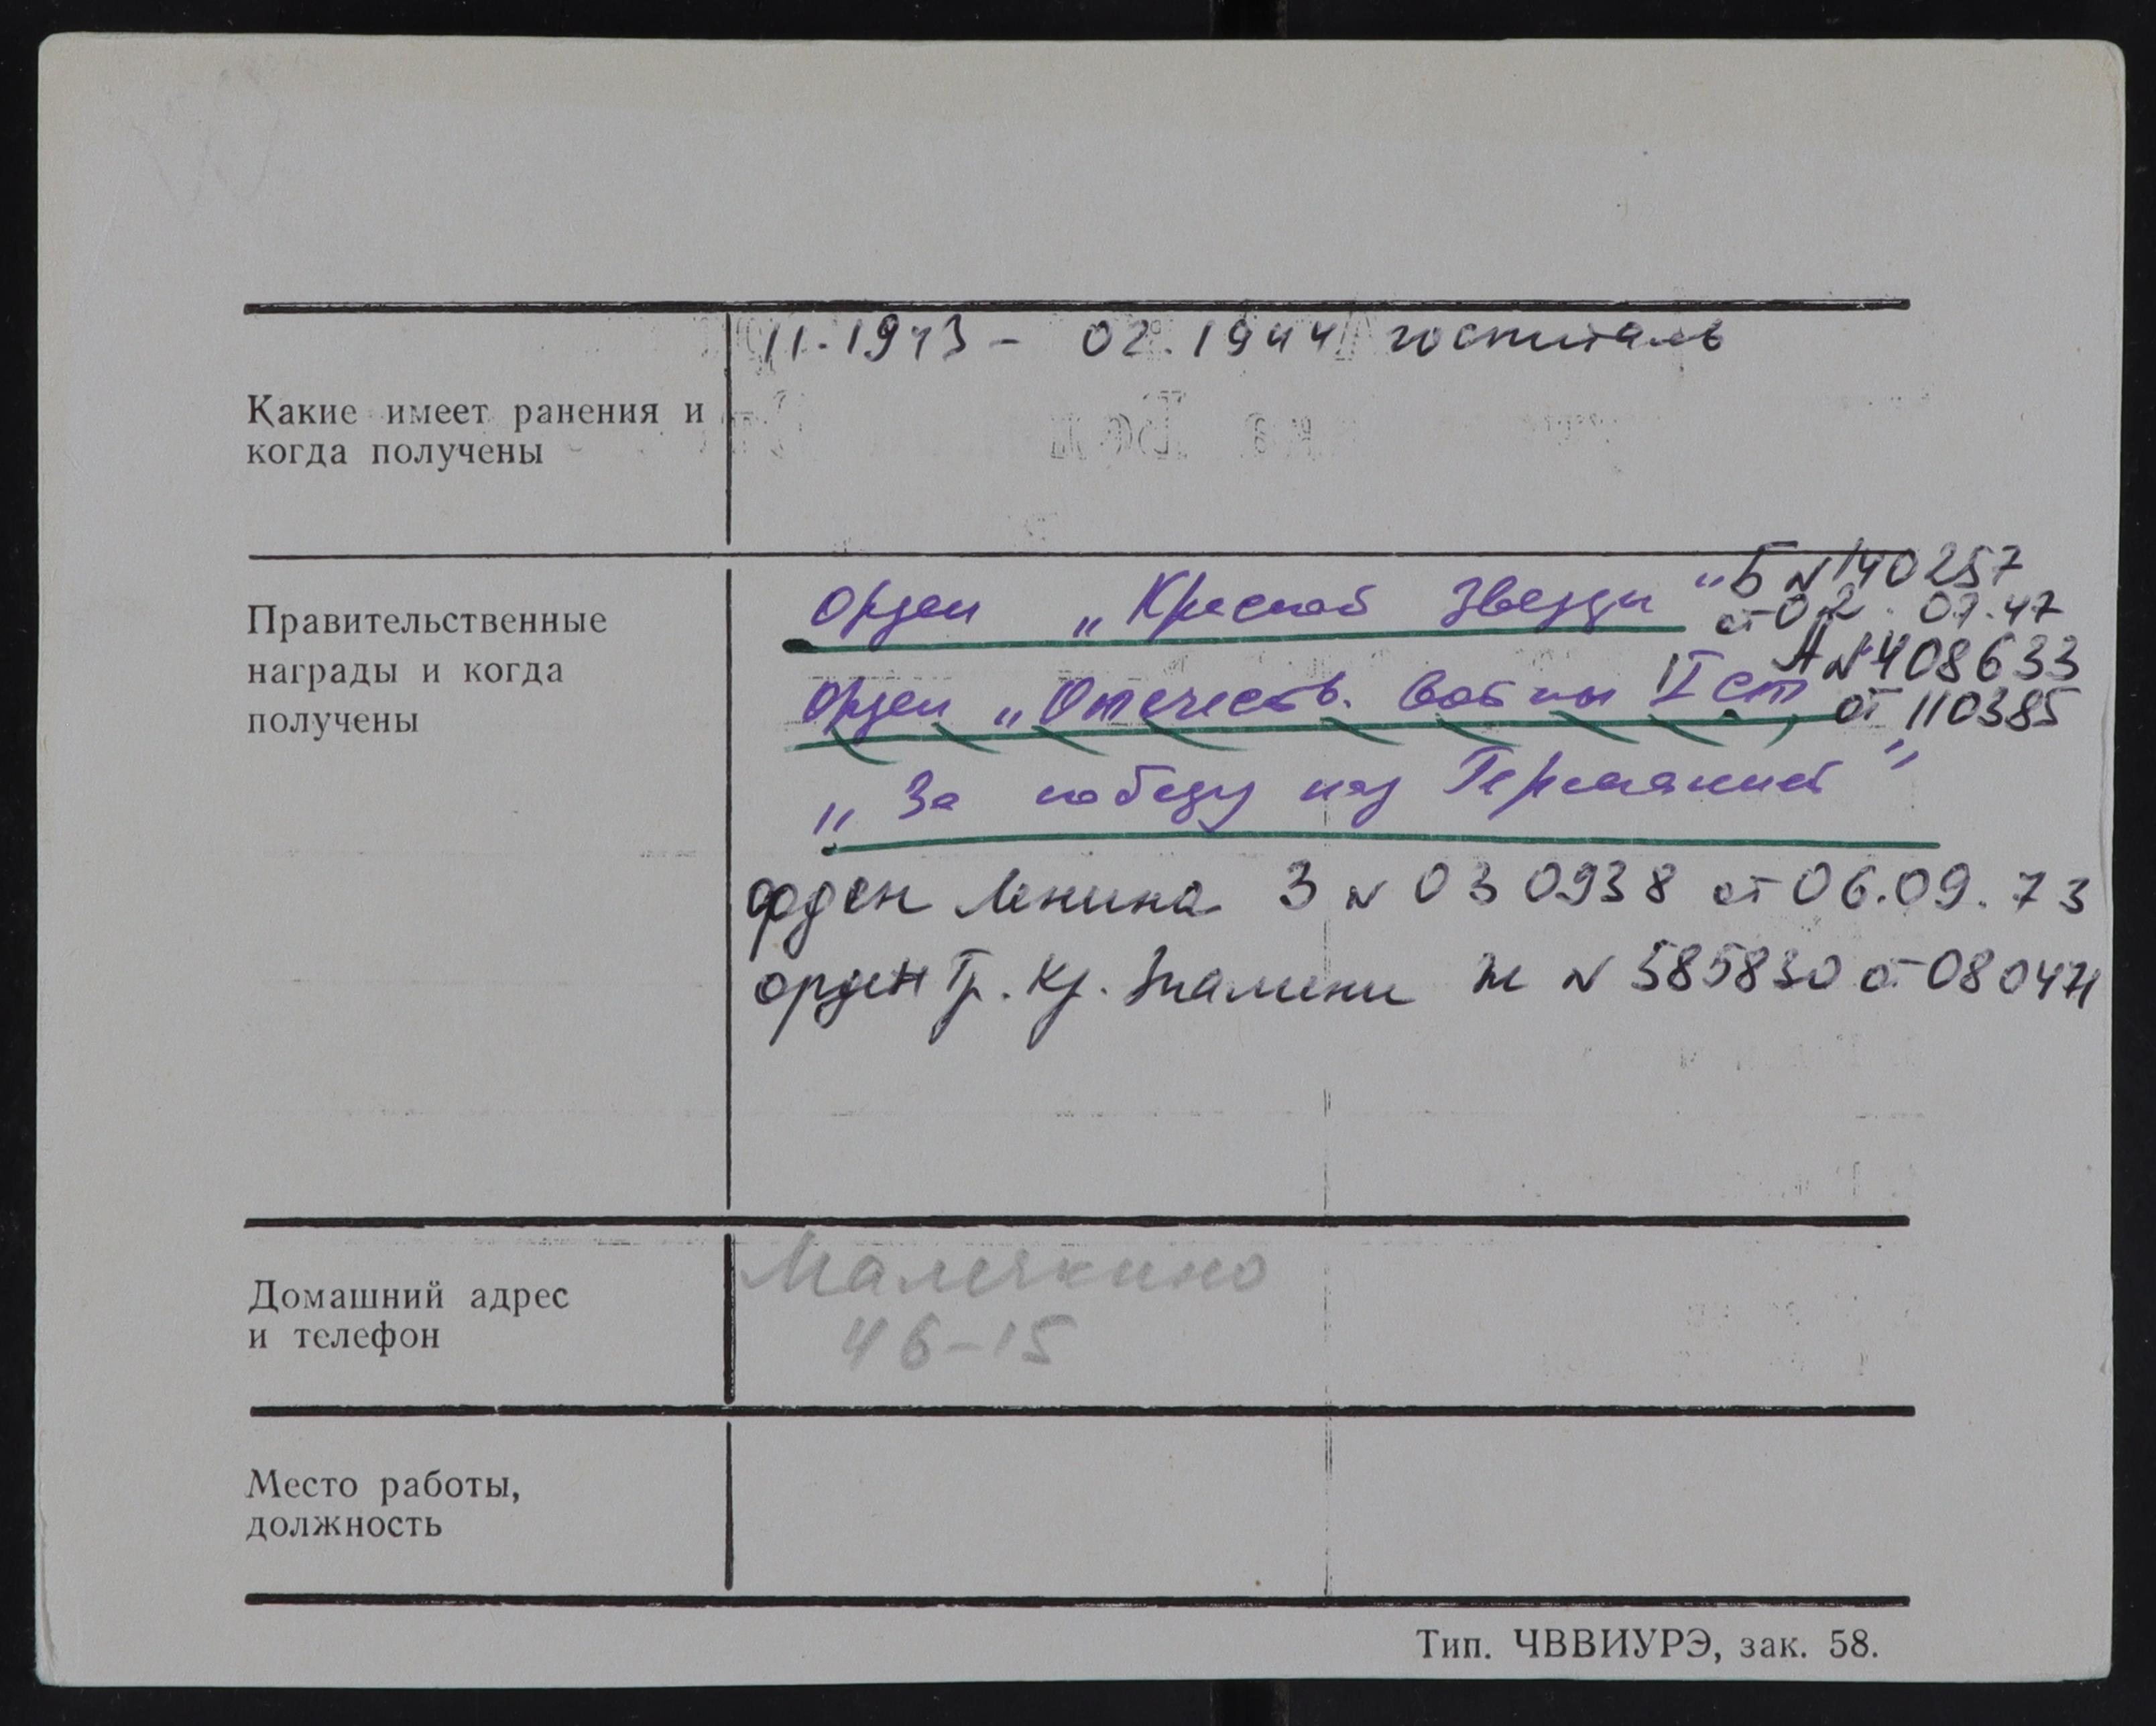 11.1943 - 02.1944 госпиталь
Какие имеет ранения и
когда получены
Правительственные
награды и когда
получены
Орден „Красной Звезды" Б N140257
от 02.07.47
Орден „Отечеств. войны II ст, А N408633
от 110385
„За победу над Германией"
орден Ленина З N 030938 от 06.09.73
орден Тр. Кр. Знамени М N 585830 от 080471
Домашний адрес
и телефон
Малечкино
46-15
Место работы,
должность
Тип. ЧВВИУРЭ, зак. 58.